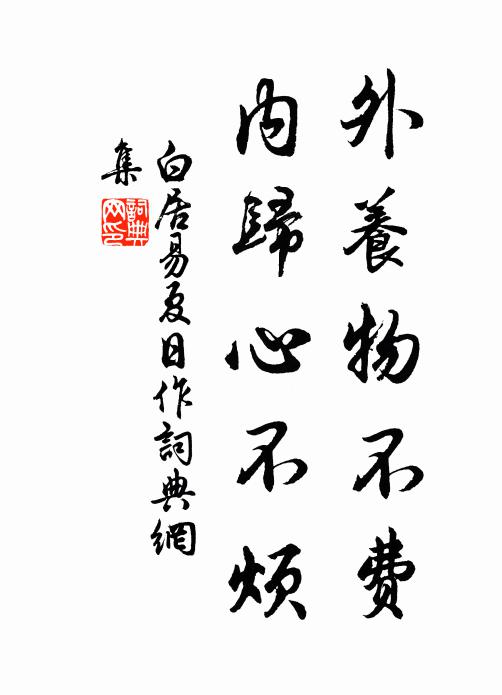 外養物不費
內歸心不煩
白居易夏日作詞典網
集
詞典
网印